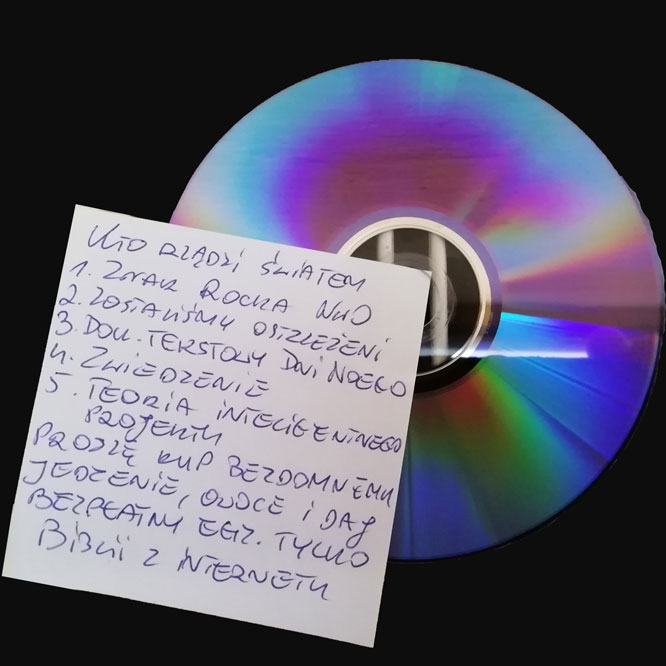 KTO RZĄDZI ŚWIATEM
1. ZNAK ROCKA NWO
2. ZOSTALIŚMY OSTRZEŻENI
3. DOK. TEKSTOWY DNI NOEGO
4. ZWIEDZENIE
5. TEORIA INTELIGENTNEGO
PROJEKTU
PROSZĘ KUP BEZDOMNEMU
JEDZENIE, OWOCE I DAJ
BEZPŁATNY EGZ. TYLKO
BIBLII Z INTERNETU